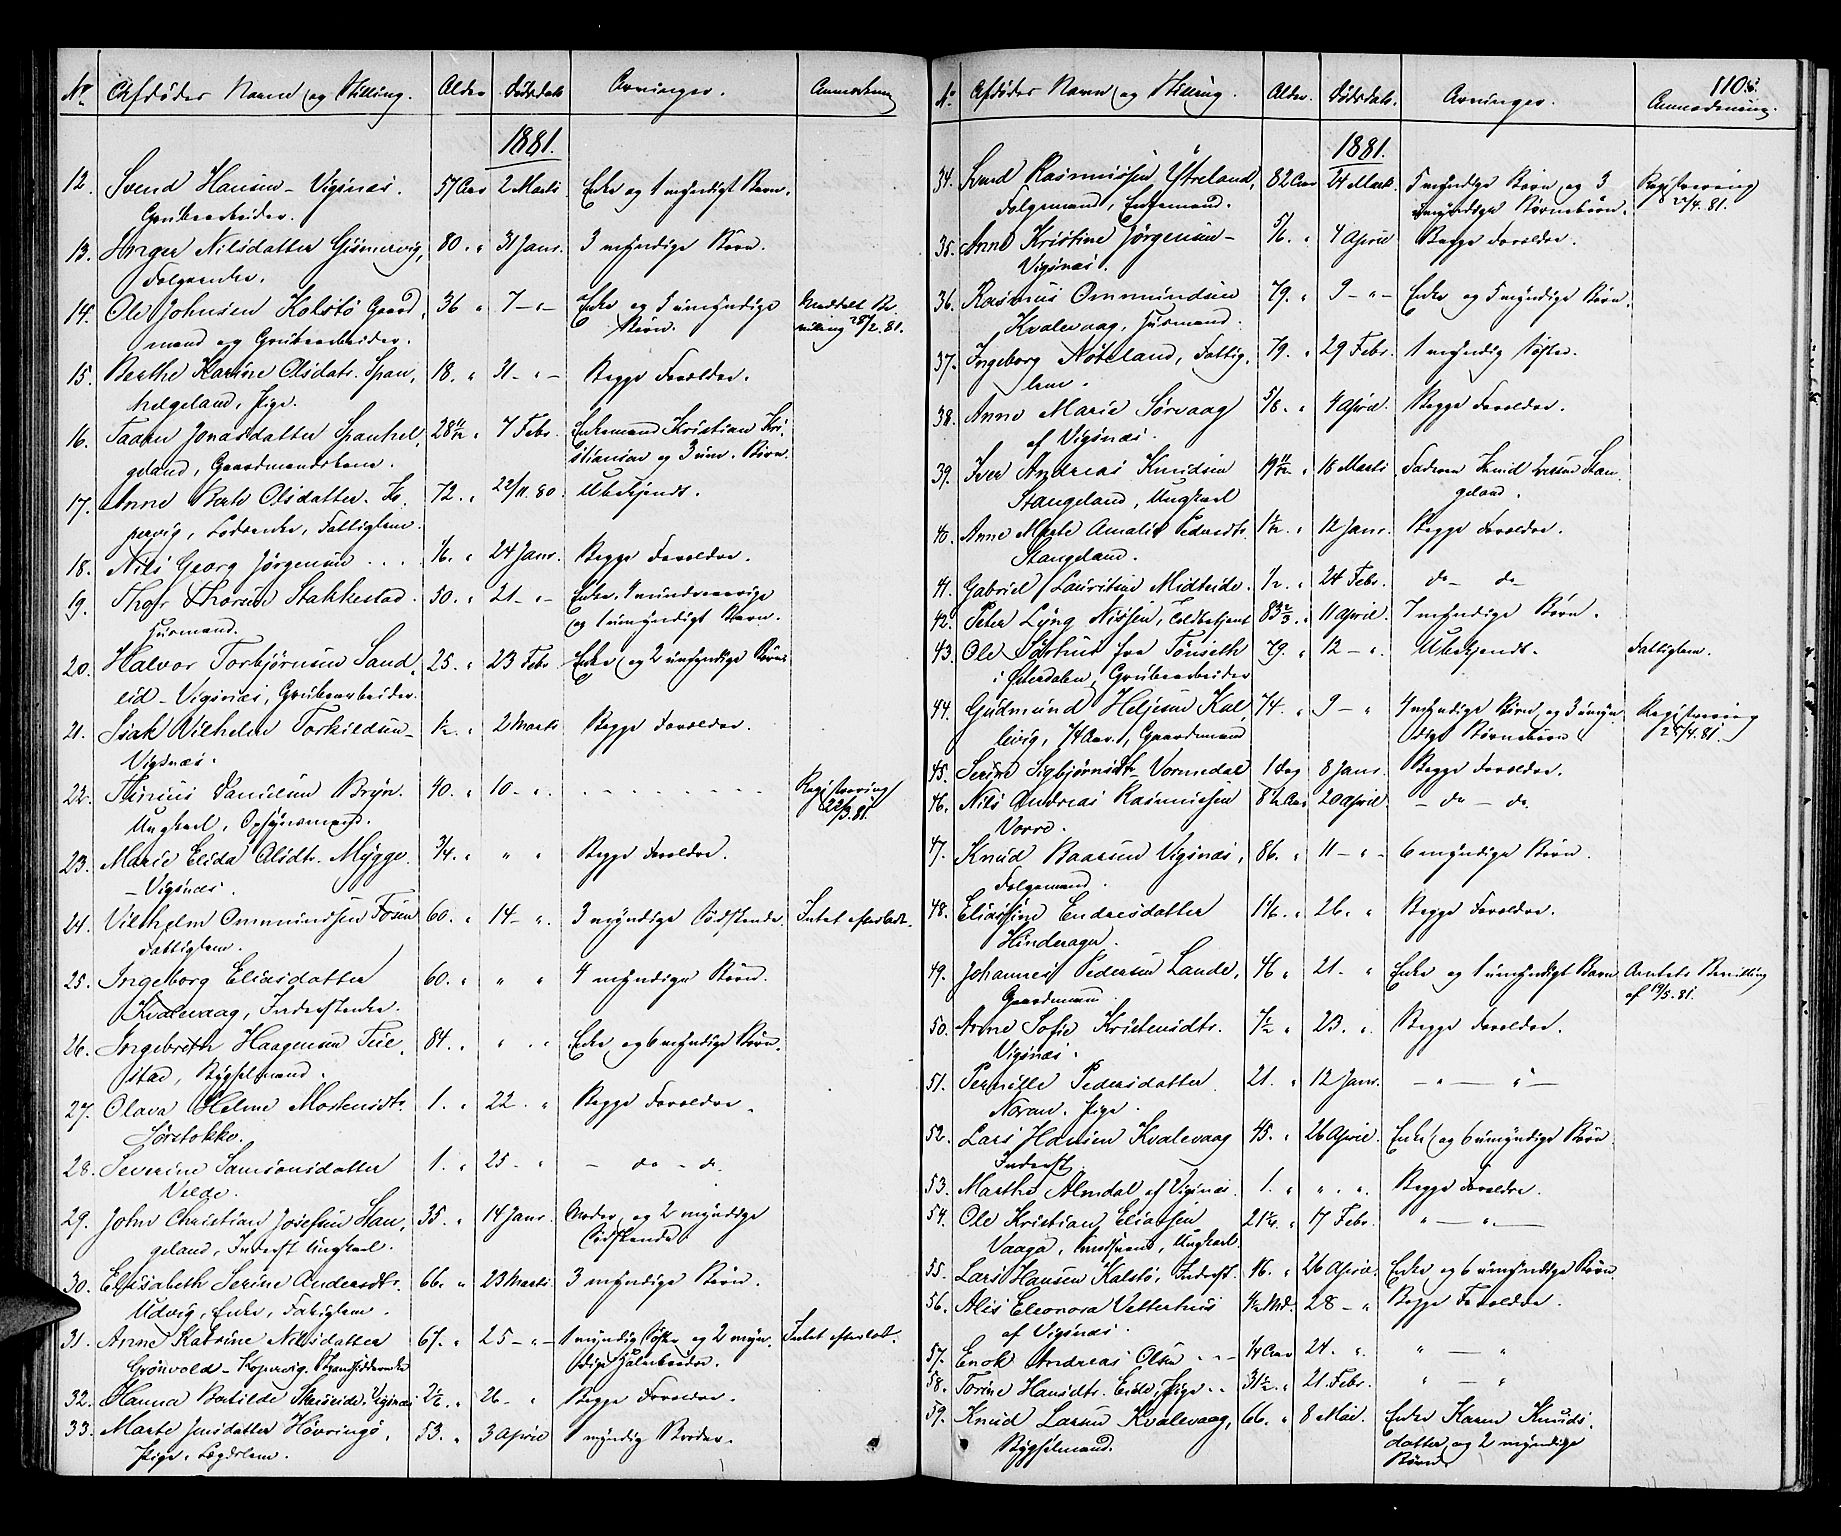 No. Afdødes Navn og Stilling. Alder Dødsdato Arvinger. Anmærkning
1881.
12. Svend Hansen - Vigsnæs. 57 Aar 2 Marts Enke og 1 myndigt Barn.
Grubearbeider.
13. Inger Nilsdatter Gismervig, 80. " 31 Janr. 3 myndige Børn.
Folgeenke.
14. Ole Johnsen Kolstø Gaard, 36 " 7 - " - Enke og 5 umyndige
mand og Grubearbeider. Børn. 28/2.81.
15. Berthe Karine Olsdatr. Span, 18. " 31 - " - Begge Forældre.
helgeland, Pige.
16. Taaren Jonasdatter Spanhel, 28 1/2 " 7 Febr. Enkemand Kristian Kri,
geland, Gaardmandskone. stiansen og 3 um. Børn.
17. Anne Berte Olsdatter. Ko, 72. " 22/11.80. Ubekjendt.
pervig, Lodsenke, Fattiglem.
18. Nils Georg Jørgensen . . . 1/6. " 24 Janr. Begge Forældre.
19. Thor Thorsen Stakkestad. 30. " 21 - " - Enke, 1 mindreaarige
Husmand. og 1 umyndigt Barn.
20. Halvor Torbjørnsen Sand, 25. " 23 Febr. Enke og 2 umyndige Børn
eid - Vigsnæs, Grubearbeider.
21. Isak Vilhelm Torkildsen - 1/2. " 2 Marts Begge Forældre.
Vigsnæs.
22. Danielsen Bryn. 40. " 10 - " - - - - - - - Registrering
Ungkarl, Opsynsmand. 22/3.81.
23. Marie Elida Olsdtr. Mygge. 3/4. " " " Begge Forældre.
- Vigsnæs.
24. Vilhelm Ommundsen Fosen 60. " 14 - " 3 myndige Sødskende. Intet efterladt.
Fattiglem.
25. Ingeborg Eliasdatter 60. " " " 4 myndige Børn.
Kvalevaag, Inderstenke.
26. Ingebreth Haagensen Teie, 84. " " " Enke og 6 myndige Børn.
stad, Bygselmand.
27. Olava Helene Mortensdtr. 1. " 22. " Begge Forældre.
Sørstokke.
28. Severine Samsonsdatter 1. " 25 - " - do - do
Velde.
29. John Christian Josefsen Stan, 35. " 14 Janr. Moder og 2 myndige
geland, Inderst Ungkarl. Sødskende.
30. Elisabeth Serine Andersdtr. 66. " 23 Marts 3 myndige Børn.
Udvig, Enke, Fattiglem.
31. Anne Katrine Nilsdatter 67. " 25 - " - 1 myndig Søster og 2 myn, Intet efterladt.
Grønvold - Kopervig, Strandsidderenke dige Halvbrødre.
32. Hanna Batilde Vigsnæs 2 1/2. " 26. " Begge Forældre.
33. Marte Jensdatter Høvringø, 53. " 3 April 1 myndig Broder.
Pige, Lægdslem.
110.
No. Afdødes Navn og Stilling. Alder. Dødsdato. Arvinger. Anmærkning.
1881.
34. Svend Rasmussen Ytreland, 82 Aar 24 Marts. 5 myndige Børn og 3 Registrering
Folgemand, Enkemand. umyndige Børnebørn. 27/4.81.
35. Anne Kristine Jørgensen - 5/6. " 4 April Begge Forældre.
Vigsnæs.
36. Rasmus Ommundsen 79. " 9 - " - Enke og 5 myndige Børn.
Kvalevaag, Husmand.
37. Ingeborg Nøteland, Fattig, 79. " 29 Febr. 1 myndig Søster.
lem.
38. Anne Marie Sørvaag 5/8. " 4 April. Begge Forældre.
af Vigsnæs.
39. Iver Andreas Knudsen 19 11/12 " 18 Marts Faderen Knud Iversen Stan,
Stangeland, Ungkarl geland.
40. Anne Marte Amalie Pedersdtr. 1 1/2. " 12 Janr. Begge Forældre.
Stangeland.
41. Gabriel Lauritsen Midteide. 1/2. " 24 Febr. do - do
42. Peter Lyng Nissen, Toldbetjent 83 2/3. " 11 April. 7 myndige Børn.
43. Ole Sørhus fra Tønseth 79. " 12 - ". Ubekjendt. Fattiglem.
i Østerdalen, Grubearbeider
44. Gudmund Heljesen Kal, 74. " 9 - " 4 myndige Børn og 3 umyn, Registrering
leivig, 74 Aar., Gaardmand dige Børnebørn 28/4.81.
45. Serine Sigbjørnsdtr. Vormedal 1 Dag 8 Janr. Begge Forældre.
46. Nils Andreas Rasmussen 8 1/2 Aar 20 April. - do - do
Vorre.
47. Knud Baarsen Vigsnæs, 86. " 11 - " - 6 myndige Børn.
Folgemand.
48. Eliassine Endresdatter 1 1/6. " 26. " Begge Forældre.
Hinderager.
49. Johannes Pedersen Lande, 46 " 21. " Enke og 1 umyndigt Barn Amtets Bevilling
Gaardmand. af 19/5.81.
50. Anne Sofie Kristensdtr. 7 1/2 " 23. ". Begge Forældre.
Vigsnæs.
51. Pernille Pedersdatter 21. " 12 Janr. - " - " -
Pige.
52. Lars Hansen Kvalevaag 45. " 26 April. Enke og 6 umyndige Børn
Inderst
53. Marthe Almdal af Vigsnæs. 1. " " ". Begge Forældre.
54. Ole Kristian Eliassen 21 1/2. " 17 Febr. " - " -
Vaaga, Ungkarl.
55. Lars Hansen Kalstø, Inderst. 46. " 26 April. Enke og 6 umyndige Børn
56. Alis Eleonora Vetterhus 4 1/2 Md. 28 - " Begge Forældre.
af Vigsnæs.
57. Enok Andreas Olsen . - - 14 Aar 24. ". " - "
58. Torine Hansdtr. Eide, Pige . . 31 1/2. " 21. Febr. " - "
59. Knud Larsen Kvalevaag, 66. " 8 Mai. Enke Karen Knuds,
Bygselmand. datter og 2 myndige
Børn.